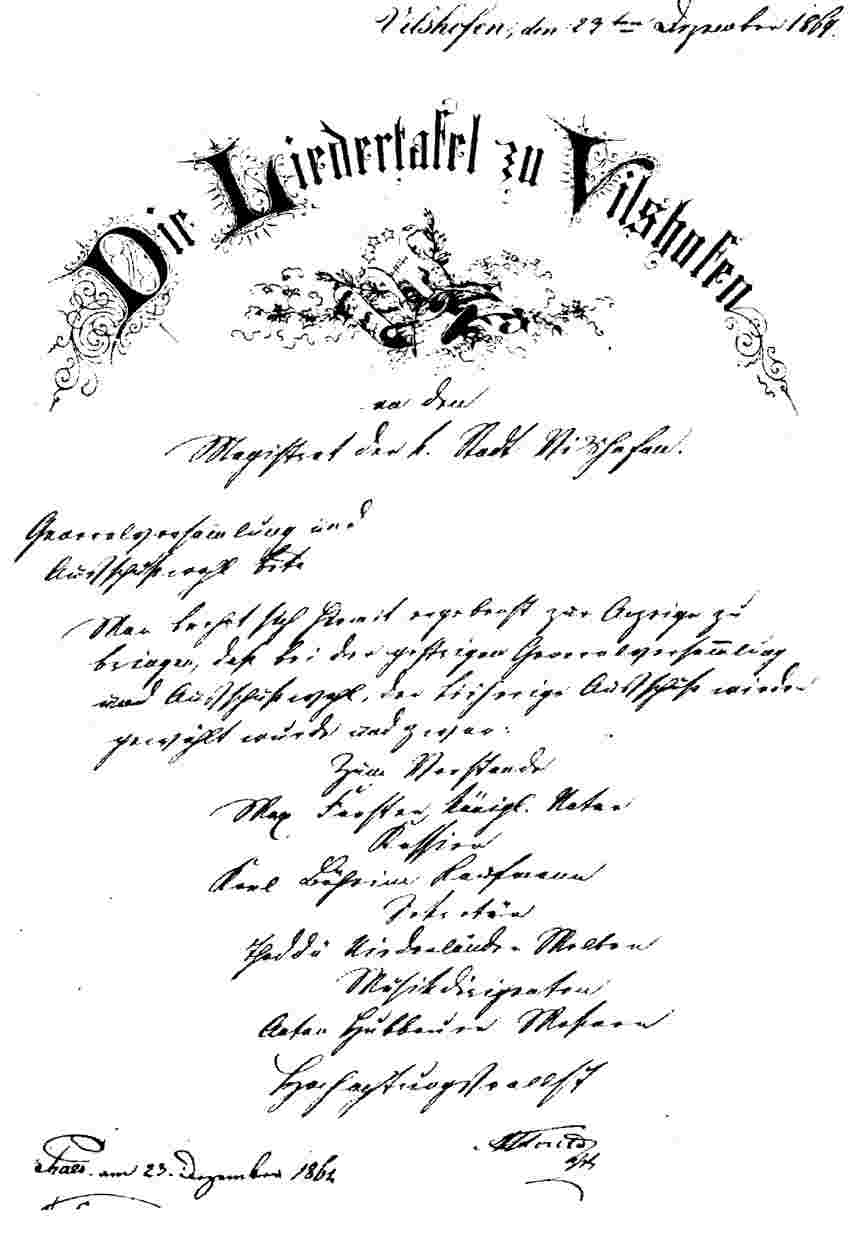 Vilshofen, den 23ten Dezember 1864.
Die Liedertafel zu Vilshofen
an den
Magistrat der k. Stadt Vilshofen.
Generalversammlung und
Ausschußwahl
Man beehrt sich hiemit ergebenst zur Anzeige zu
bringen, daß bei der gestrigen Generalversammlung
und Ausschußwahl, der bisherige Ausschuß wieder
gewählt wurde und zwar:
Zum Vorstande
Max Forster, königl. Notar
Kassier
Karl Kaufmann
Sekretär
Niederländer
Musikdirigenten
Anton
Hochachtungsvollst
am 23. Dezember 1864